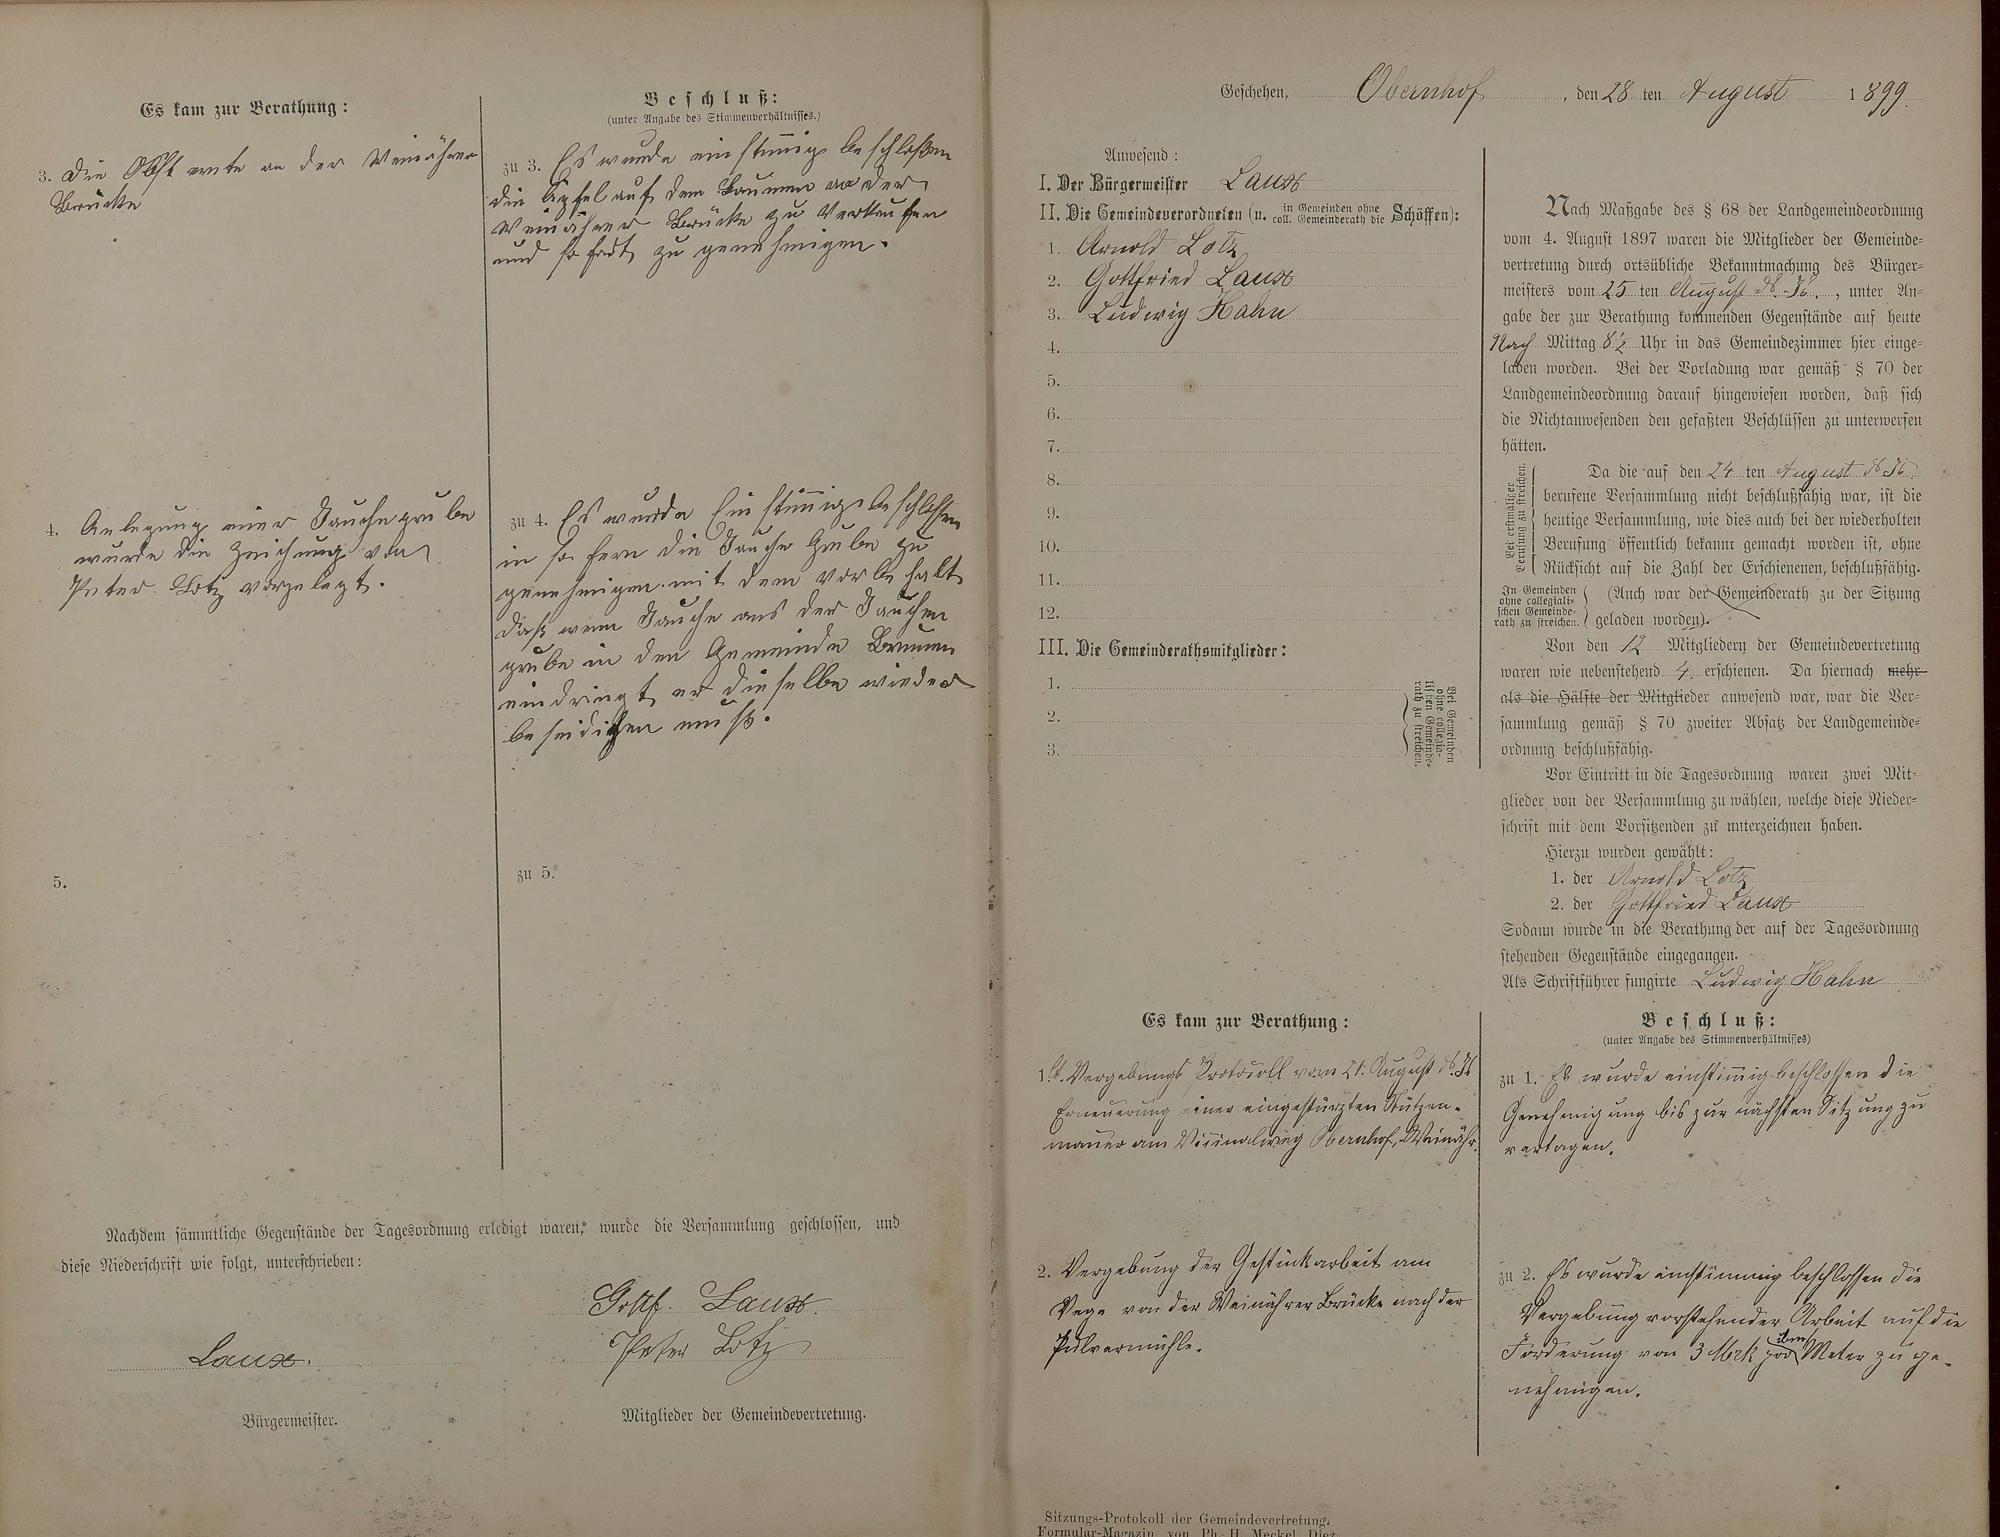 Es kam zur Berathung:
3. Die Obst ernte an der Weinährer
Brücke
4. Anlegung einer Jauchegrube
wurde die Zeichnung von
Peter Lotz vorgelegt.
5.
Beschluß:
(unter Angabe des Stimmenverhältnisses.)
zu 3. Es wurde einstimig beschloßen
die Äpfel auf den Baumen an der
Weinährer Brücke zu Verkaufen
und sofort zu genehmigen.
zu 4. Es wurde Einstimig beschlossen
in so fern die Jauche Grube zu
genehmigen mit dem vorbehalt
daß wenn Jauche aus der Jauchen
grube in den Gemeinde Brunnen
eindringt er dieselbe wieder
beseidichen muß.
zu 5.
Nachdem sämmtliche Gegenstände der Tagesordnung erledigt waren, wurde die Versammlung geschlossen, und
diese Niederschrift wie folgt, unterschrieben:
Gottf. Laux.
Peter Lotz
Laux.
Bürgermeister.
Mitglieder der Gemeindevertretung.
Geschehen, Obernhof, den 28 ten August 1899.
Anwesend:
I. Der Bürgermeister Laux
II. Die Gemeindeverordneten (u. in Gemeinden ohne coll. Gemeinderath die Schöffen):
1. Arnold Lotz
2. Gottfried Laux
3. Ludwig Hahn
4.
5.
6.
7.
8.
9.
10.
11.
12.
III. Die Gemeinderathsmitglieder:
1.
2.
3.
Bei Gemeinden
ohne collegia-
lischen Gemeinde-
rath zu streichen.
Nach Maßgabe des § 68 der Landgemeindeordnung
vom 4. August 1897 waren die Mitglieder der Gemeinde-
vertretung durch ortsübliche Bekanntmachung des Bürger-
meisters vom 25 ten August ds. Js., unter An-
gabe der zur Berathung kommenden Gegenstände auf heute
Nach Mittag 8½ Uhr in das Gemeindezimmer hier einge-
laden worden. Bei der Vorladung war gemäß § 70 der
Landgemeindeordnung darauf hingewiesen worden, daß sich
die Nichtanwesenden den gefaßten Beschlüssen zu unterwerfen
hätten.
Bei erstmaliger
Berufung zu streichen.
Da die auf den 24 ten August ds Js.
berufene Versammlung nicht beschlußfähig war, ist die
heutige Versammlung, wie dies auch bei der wiederholten
Berufung öffentlich bekannt gemacht worden ist, ohne
Rücksicht auf die Zahl der Erschienenen, beschlußfähig.
In Gemeinden
ohne collegiali-
schen Gemeinde-
rath zu streichen.
(Auch war der Gemeinderath zu der Sitzung
geladen worden).
Von den 12 Mitgliedern der Gemeindevertretung
waren wie nebenstehend 4. erschienen. Da hiernach mehr
als die Hälfte der Mitglieder anwesend war, war die Ver-
sammlung gemäß § 70 zweiter Absatz der Landgemeinde-
ordnung beschlußfähig.
Vor Eintritt in die Tagesordnung waren zwei Mit-
glieder von der Versammlung zu wählen, welche diese Nieder-
schrift mit dem Vorsitzenden zu unterzeichnen haben.
Hierzu wurden gewählt:
1. der Arnold Lotz
2. der Gottfried Laux
Sodann wurde in die Berathung der auf der Tagesordnung
stehenden Gegenstände eingegangen.
Als Schriftführer fungirte Ludwig Hahn
Es kam zur Berathung:
1. Vergebungs Protocoll vom 21. August ds. Js
Erneuerung einer eingestürzten Stützen-
mauer am Vicinalweg Obernhof, Weinähr.
2. Vergebung der Gestückarbeit am
Wege von der Weinährer Brücke nach der
Pulvermühle.
Beschluß:
(unter Angabe des Stimmenverhältnisses)
zu 1. Es wurde einstimig beschlossen die
Genehmigung bis zur nächsten Sitzung zu
vertagen.
zu 2. Es wurde einstimmig beschlossen die
Vergebung vorstehender Arbeit auf die
Forderung von 3 Mrk pro Meter zu ge-
nehmigen.
Sitzungs-Protokoll der Gemeindevertretung.
Formular-Magazin von Ph. H. Meckel Diez